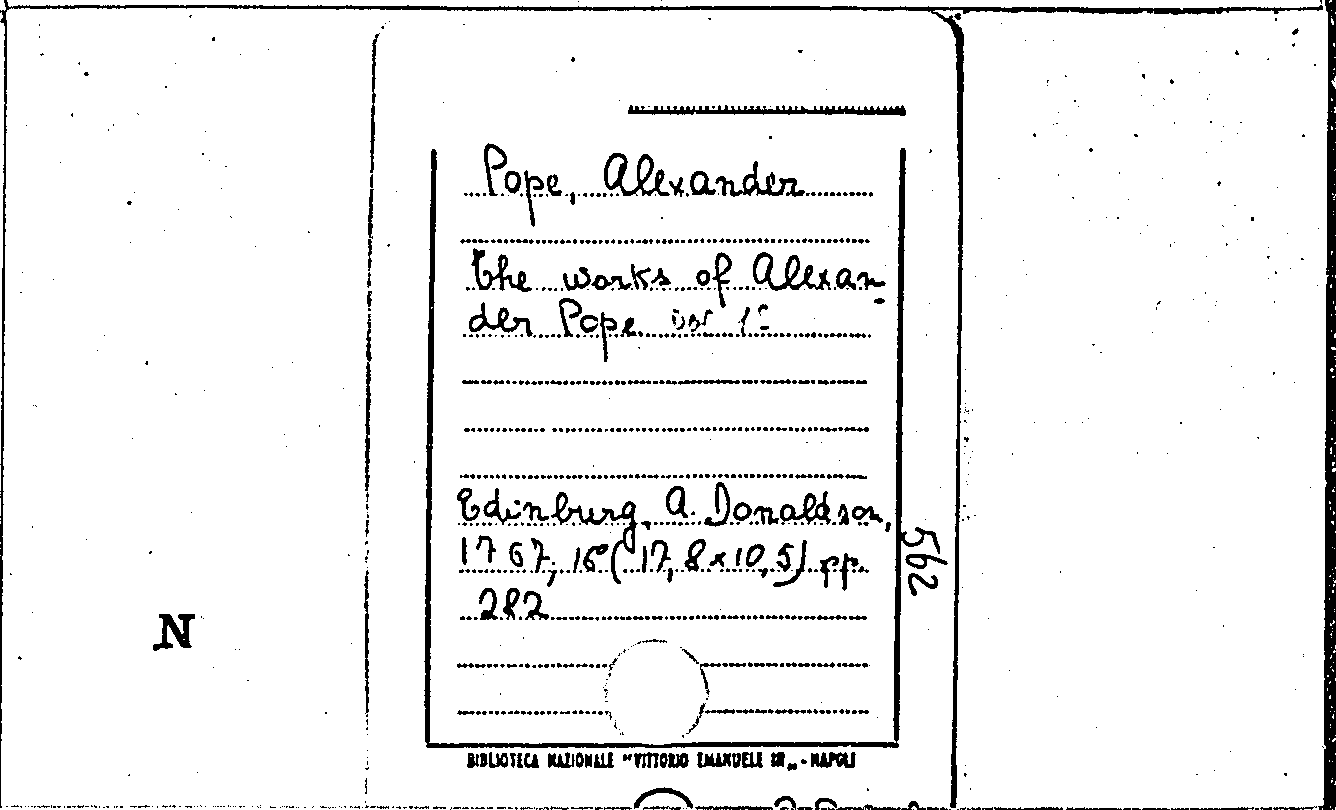 Pope, Alexander
The works of Alexan-
der Pope vol 1°
Edinburg, A. Donaldson,
1767, 16° (17,8x10,5) pp.
282
562
N
BIBLIOTECA NAZIONALE "VITTORIO EMANUELE III" - NAPOLI